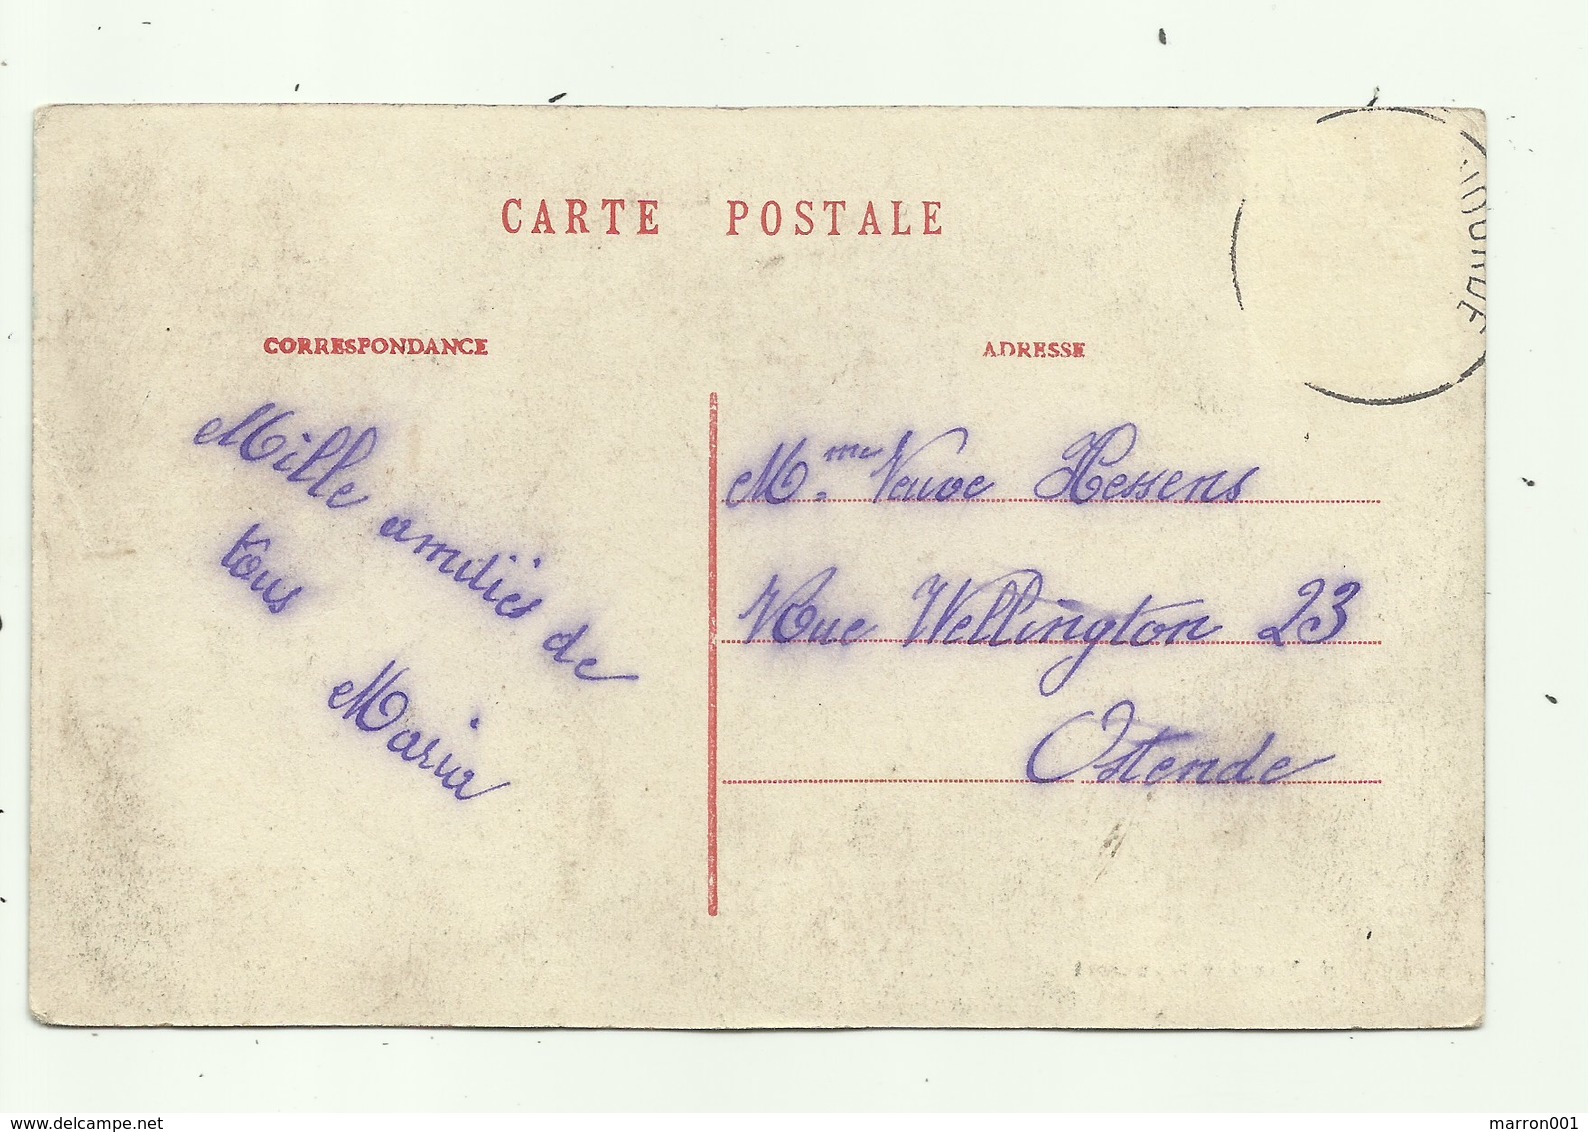 CARTE POSTALE
CORRESPONDANCE
ADRESSE
Mille amitiés de
tous
Maria
Mme Veuve Hessens
Rue Wellington 23
Ostende
www.delcampe.net
marron001